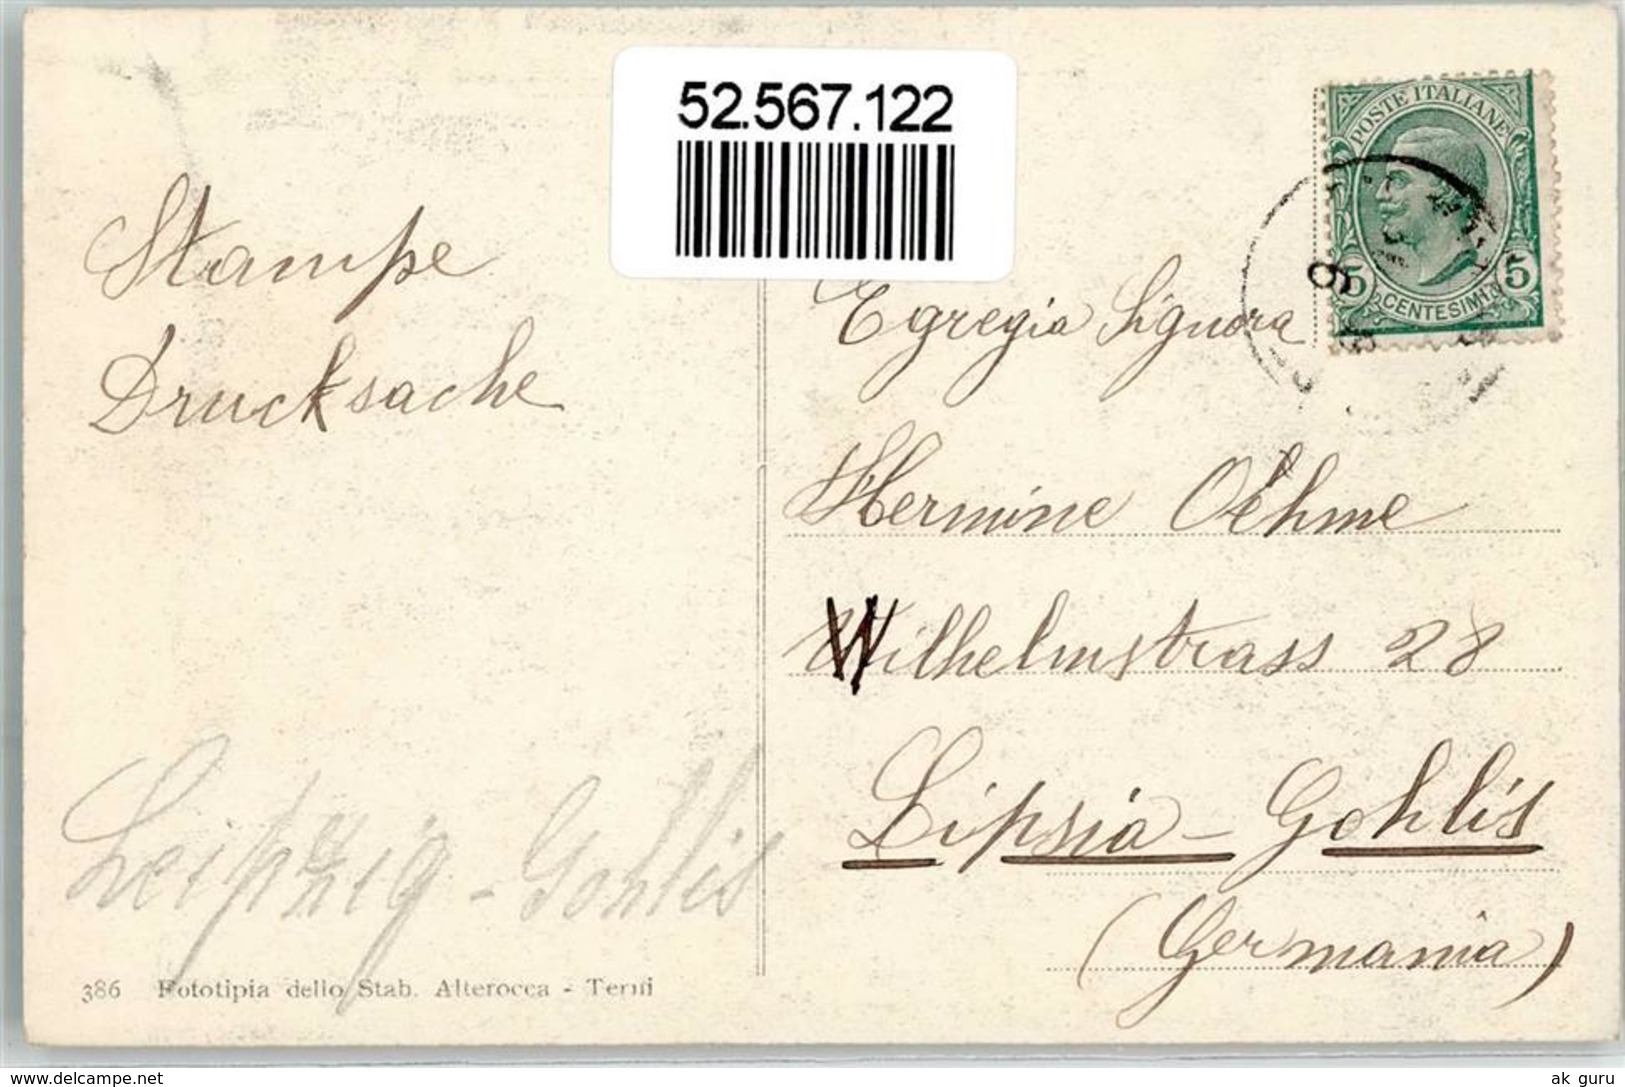 52.567.122
POSTE ITALIANE
5 CENTESIMI 5
Stampe
Drucksache
Egregia Signora
Hermine Oehme
Wilhelmstrass 28
Lipsia - Gohlis
(Germania)
Leipzig - Gohlis
386 Fototipia dello Stab. Alterocca - Terni
www.delcampe.net
ak_guru